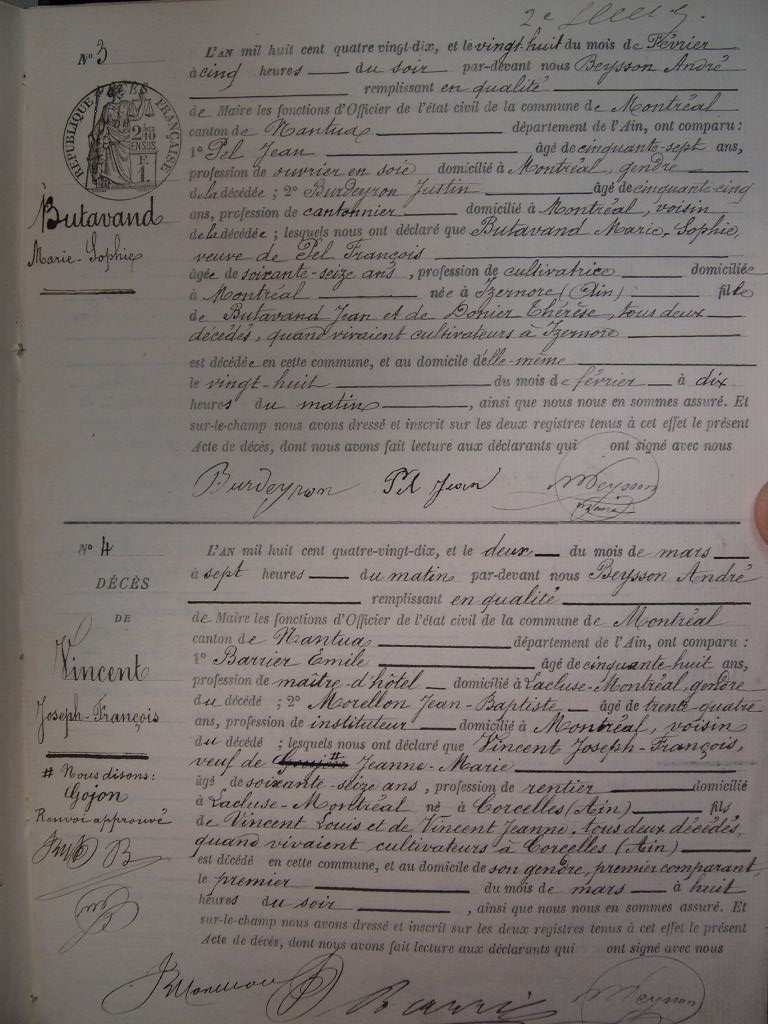 N° 3
RÉPUBLIQUE FRANÇAISE
L'AN mil huit cent quatre vingt-dix, et le vingt-huit du mois de Février
à cinq heures du soir par-devant nous Beysson André
remplissant en qualité
de Maire les fonctions d'Officier de l'état civil de la commune de Montréal
canton de Nantua département de l'Ain, ont comparu :
1° Pel Jean âgé de cinquante-sept ans,
profession de ouvrier en soie domicilié à Montréal, gendre
de la décédée ; 2° Burdeyron Justin âgé de cinquante-cinq
ans, profession de cantonnier domicilié à Montréal, voisin
de la décédée ; lesquels nous ont déclaré que Butavand Marie-Sophie,
veuve de Pel François
âgée de soixante-seize ans, profession de cultivatrice domiciliée
à Montréal née à Izernore (Ain) : fille
de Butavand Jean et de Thérèse, tous deux
décédés, quand vivaient cultivateurs à Izernore
est décédée en cette commune, et au domicile d'elle-même
le vingt-huit du mois de février à dix
heures du matin, ainsi que nous nous en sommes assuré. Et
sur-le-champ nous avons dressé et inscrit sur les deux registres tenus à cet effet le présent
Acte de décès, dont nous avons fait lecture aux déclarants qui ont signé avec nous
Butavand
Marie-Sophie
Burdeyron Pel Jean Beysson
N° 4
DÉCÈS
DE
Vincent
Joseph-François
# Nous disons :
Gojon
Renvoi approuvé
L'AN mil huit cent quatre-vingt-dix, et le deux du mois de mars
à sept heures du matin par-devant nous Beysson André
remplissant en qualité
de Maire les fonctions d'Officier de l'état civil de la commune de Montréal
canton de Nantua département de l'Ain, ont comparu :
1° Barrier Émile âgé de cinquante-huit ans,
profession de maître-d'hôtel domicilié à Lacluse-Montréal, gendre
du décédé ; 2° Morellon Jean-Baptiste âgé de trente-quatre
ans, profession de instituteur domicilié à Montréal, voisin
du décédé ; lesquels nous ont déclaré que Vincent Joseph-François,
veuf de # Jeanne-Marie
âgé de soixante-seize ans, profession de rentier domicilié
à Lacluse-Montréal né à Corcelles (Ain) fils
de Vincent Louis et de Vincent Jeanne, tous deux décédés,
quand vivaient cultivateurs à Corcelles (Ain)
est décédé en cette commune, et au domicile de son gendre, premier comparant,
le premier du mois de mars à huit
heures du soir, ainsi que nous nous en sommes assuré. Et
sur-le-champ nous avons dressé et inscrit sur les deux registres tenus à cet effet le présent
Acte de décès, dont nous avons fait lecture aux déclarants qui ont signé avec nous
Beysson